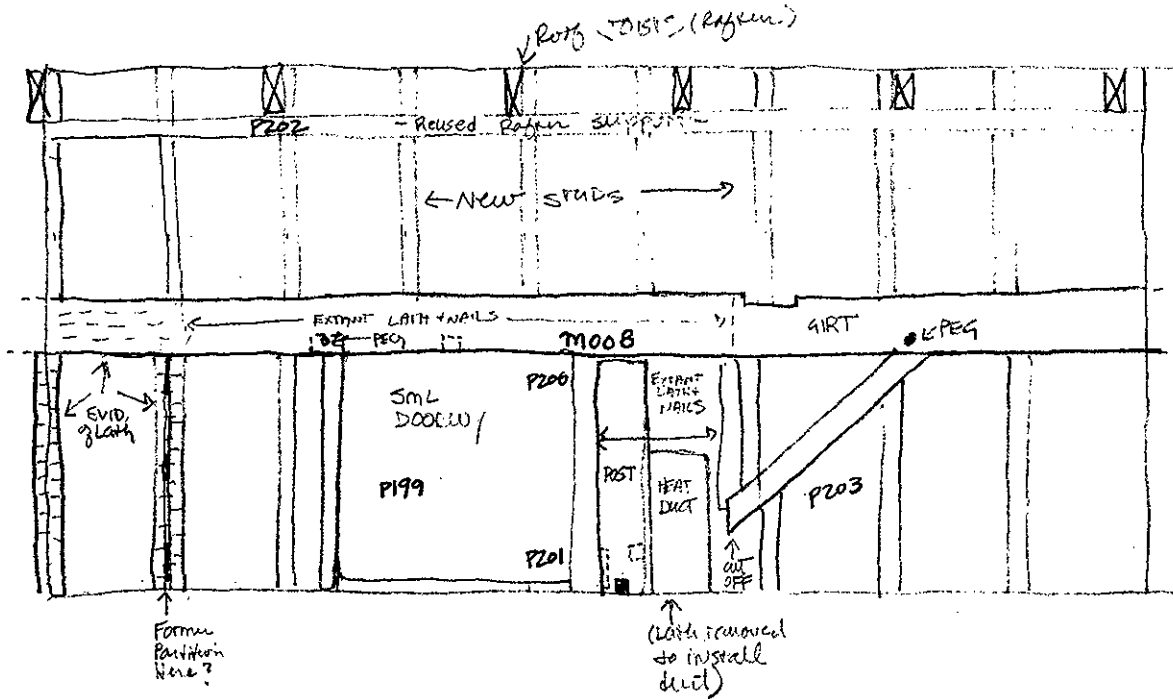 Roof Joists (Rafter)
P202
- Reused Rafter support -
← New studs →
EXTANT LATH + NAILS
PEG
M008
GIRT
PEG
EVID.
of Lath
SML
DOORW/
P206
EXTANT
LATH +
NAILS
P199
POST
HEAT
DUCT
P203
P201
CUT
OFF
Former
Partition
Here?
(Lath removed
to install
duct)